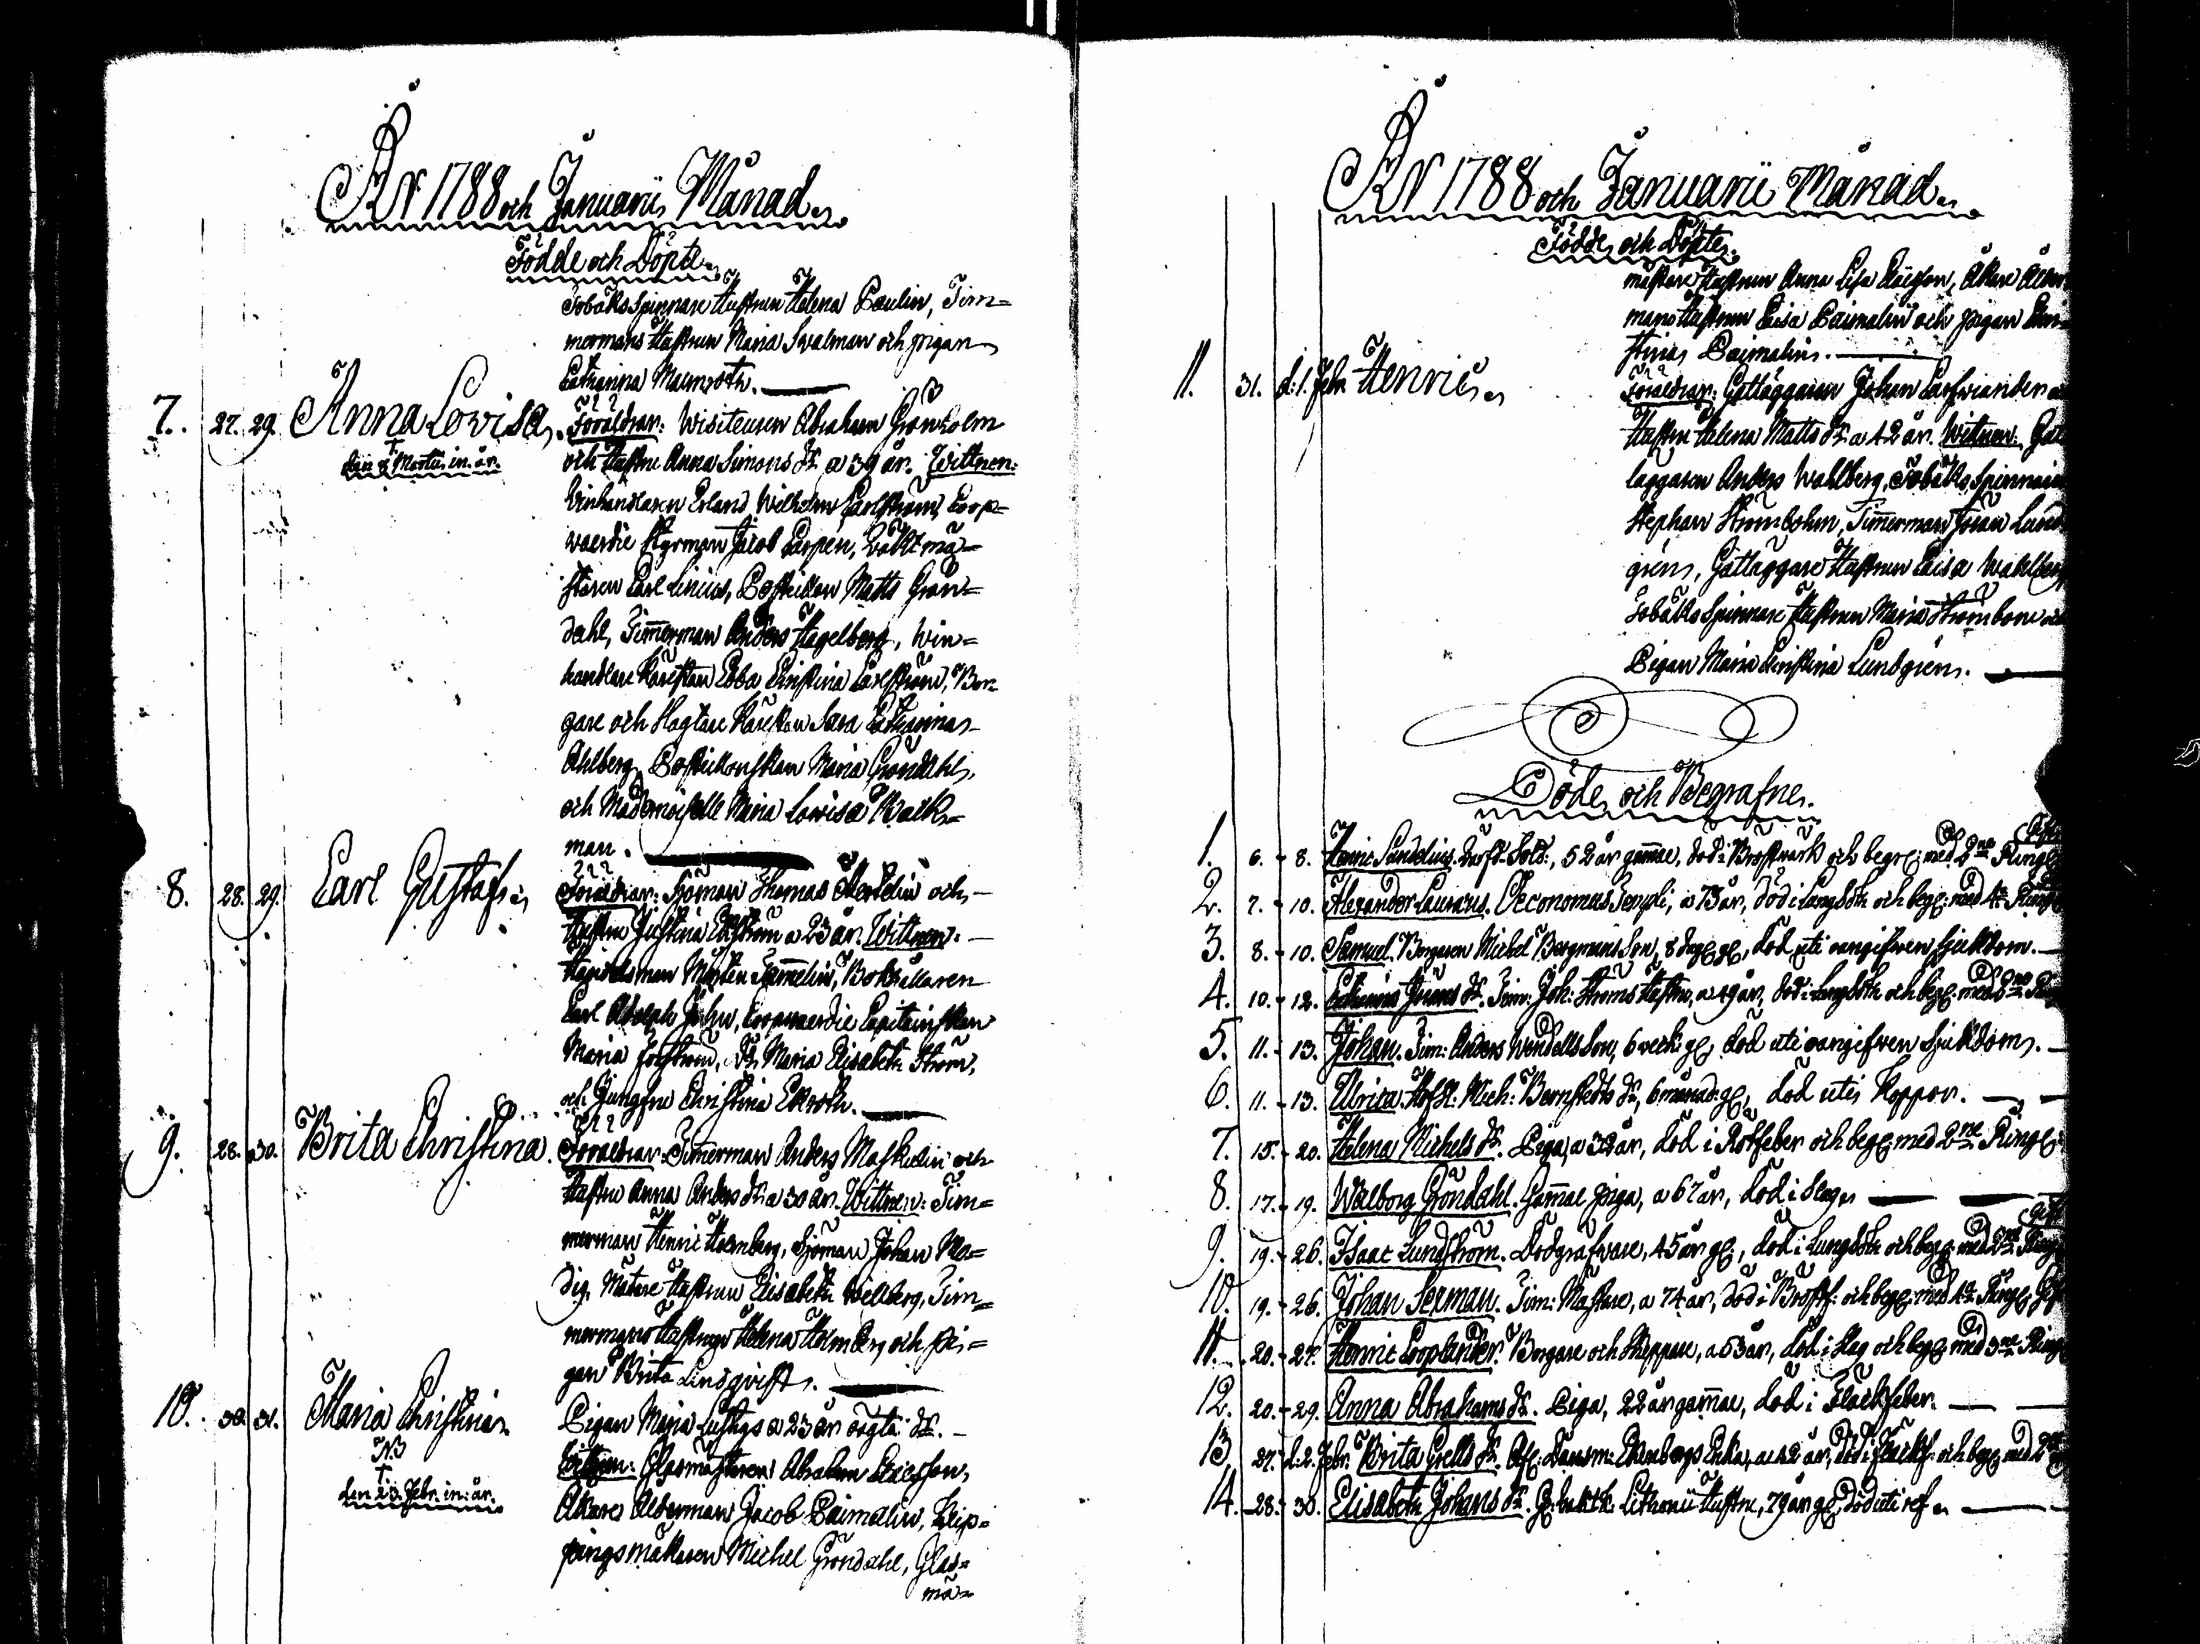 År 1788 och Januarii Månad.
Födde och Döpte.
Tobaks Spinnare Hustrun Helena Paulin, Tim=
mermans Hustrun Maria Swalman och pigan
Catharina Malmroth.
7. 27. 29. Anna Lovisa. Föräldrar: Wisiteuren Abraham Grönholm
den 8 Martii in. år. och Hustru Anna Simons dr. a 39 år. Wittnen:
Winhandlaren Erland Wilhelm Carlström, Coop=
waerdie Styrman Jacob Carpen, Wäktmä=
staren Carl Linius, Postilion Matts Grön=
dahl, Timerman Anders Hagelberg, Win=
handlare Käreskan Ebba Christina Carlström, Bor=
gare och Slagtare Käreskan Sara Catharina
Ahlberg, Postillonskan Maria Gröndahl,
och Mademoiselle Maria Lovisa Back=
man.
8. 28. 29. Carl Gustaf. Föräldrar: Sjöman Thomas Merdelin och
Hustru Justina Ekström a 23 år. Wittnen:
Handelsman Mårten Sammelin, Bokhållaren
Carl Adolph John, Coopwaerdie Capitainskan
Maria Forsström, Maria Elisabeth Ström,
och Jungfru Christina Ekroth.
9. 28. 30. Brita Christina. Föräldrar: Timerman Anders Maskulin och
Hustru Anna Anders dr. a 30 år. Wittnen: Tim=
merman Henric Holmberg, Sjöman Johan Ma=
dig, Mätare Hustrun Elisabeth Welberg, Tim=
mermans Hustrun Helena Holmberg och pi=
gan Brita Lindqvist.
10. 30. 31. Maria Christina. Pigan Maja Lustigs a 23 år oägta dr.
NB
den 23 Febr. in: år.
Wittnen: Glasmästaren Abraham Ericsson,
Åkares Ålderman Jacob Paimalin, Klip=
pingsmakaren Michel Gröndahl, Glas=
mä=
År 1788 och Januarii Månad.
Födde och Döpte.
mästare Hustrun Anna Lisa, Åkare Ålder
mans Hustrun Caisa Paimalin och pigan
Stina Paimalin.
11. 31. d: 1. Febr. Henric. Föräldrar: Gatläggaren Johan
Hustru Helena Matts dr. a 42 år. Wittnen: Gat
läggaren Anders Wahlberg, Tobaks Spinnare
Stephan Strömbohm, Timerman Jöran Lund
grén, Gatläggare Hustrun Caisa Wahlberg
Tobaks Spinnare Hustrun Maria Strömbom och
Pigan Maria Christina Lundgrén.
Döde och Begrafne.
1. 6. - 8. Henric Sundelius. Sold:, 52 år gamal, död i Bröstwärk och begr: med 2ne Ring:
2. 7. - 10. Alexander Lauraeus. Oeconomus Templi, a 73 år, död i Lungsoth och begr: med 4r Ring:
3. 8. - 10. Samuel. Borgaren Michel Bergmans Son, 8 dag: g:, död uti oangifwen Sjukdom.
4. 10. - 12. Catharina Jörans dr. Tim: Joh: Ströms Hustru, a 49 år, död i Lungsoth och begr: med 2ne
5. 11. - 13. Johan. Tim: Anders Windells Son, 6 weck: g:, död uti oangifwen Sjukdom.
6. 11. - 13. Ulrica. Mich: Bernstedts dr, 6 månad: g:, död uti Koppor.
7. 15. - 20. Helena Michels dr. Piga, a 32 år, död i Rötfeber och begr: med 2ne Ring:
8. 17. - 19. Walborg Gröndahl. Gamal piga, a 67 år, död i Slag.
9. 19. - 26. Isaac Lundström. Dödgräfware, 45 år g:, död i Lungsoth och begr: med 2ne Ring:
10. 19. - 26. Johan Sexman. Tim: Mästare, a 74 år, död i Bröstf: och begr: med 4r Ring:
11. 20. - 27. Henric Cooplander. Borgare och Skeppare, a 53 år, död i Slag och begr: med 3ne Ring:
12. 20. - 29. Anna Abrahams dr. Piga, 22 år gamal, död i Fläckfeber.
13. 27. d: 2. Febr. Brita Grells dr. Länsm: Ekenbergs Enka, a 42 år, död i Fläckf: och begr: med
14. 28. - 30. Elisabeth Johans dr. Hustru, 79 år g:, död uti ref.